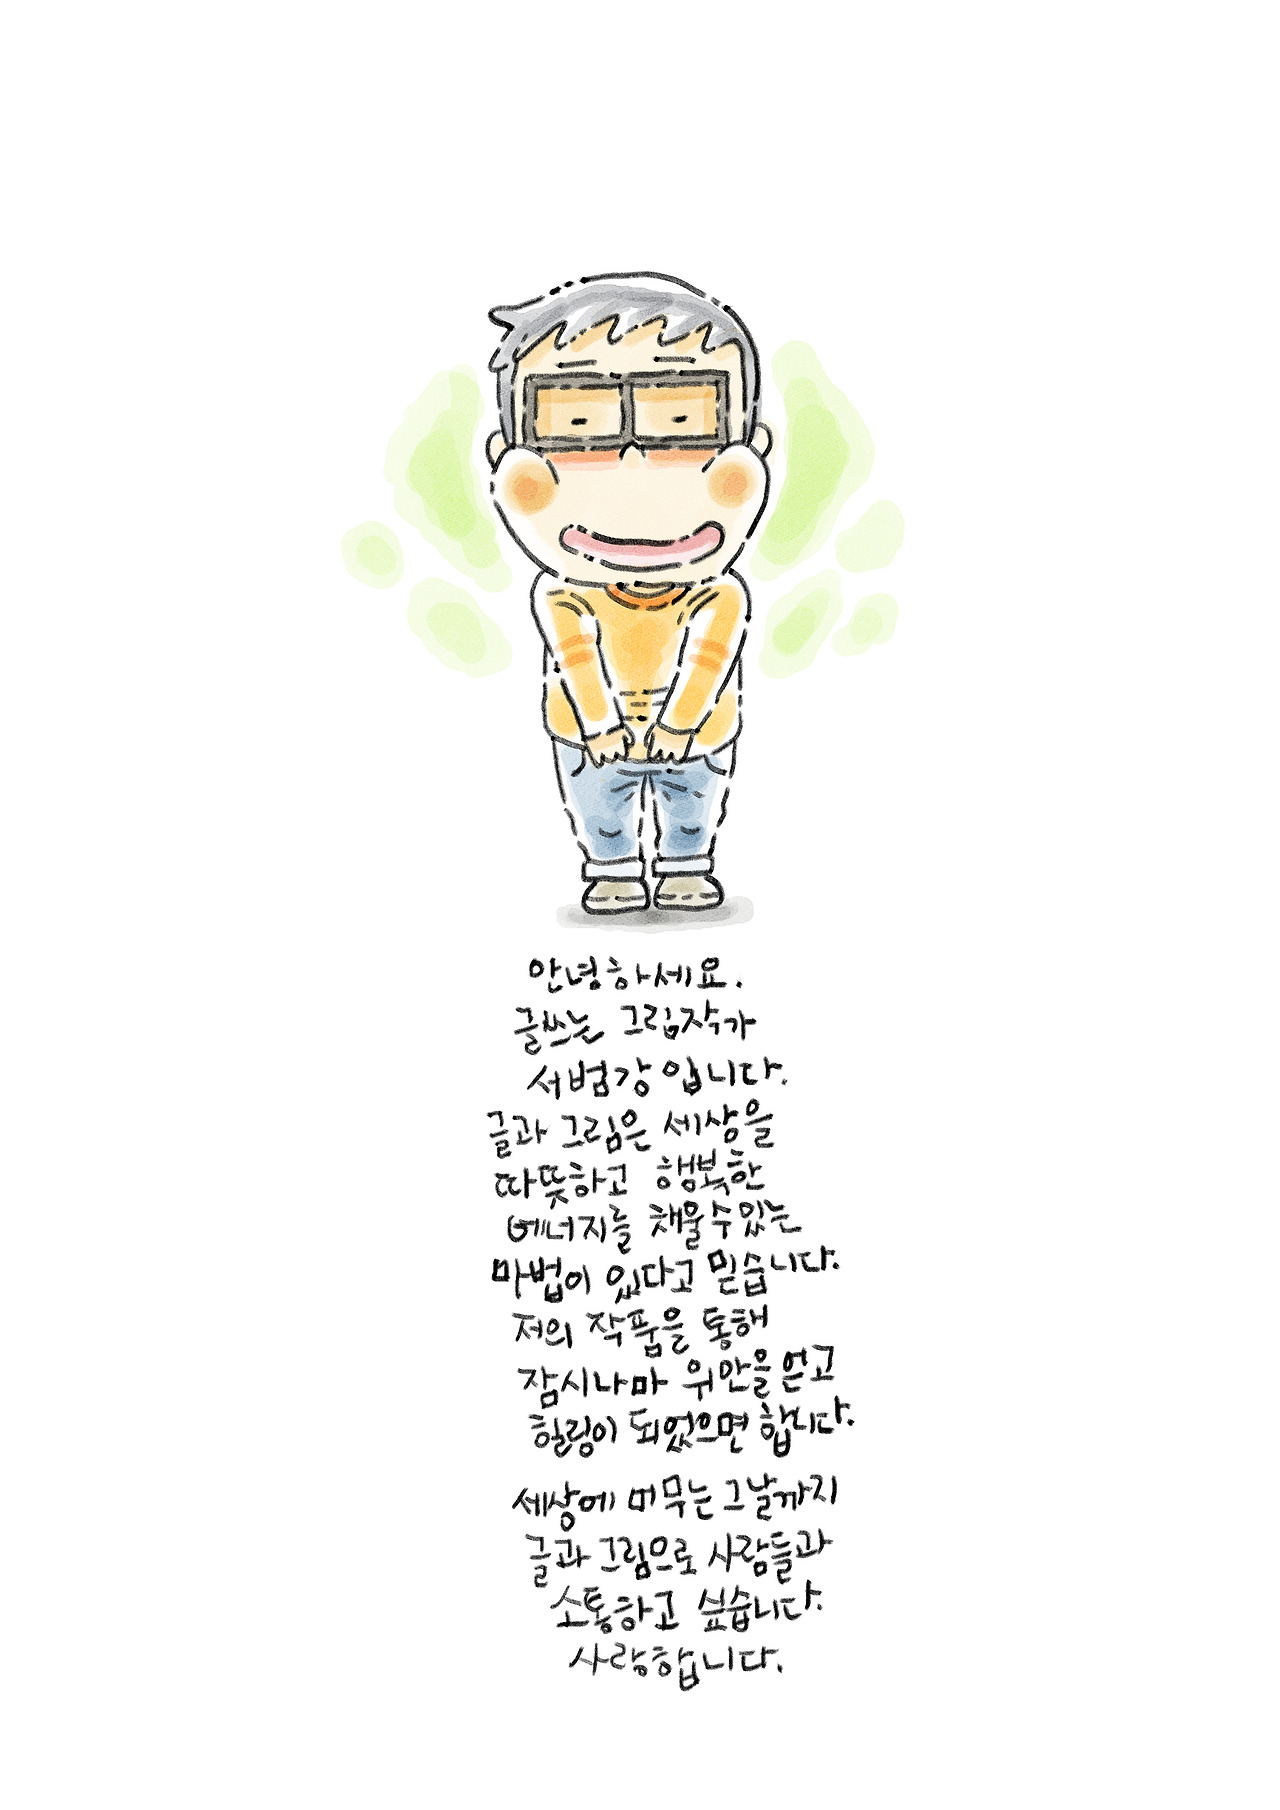 안녕하세요.
글쓰는 그림작가
서범강 입니다.
글과 그림은 세상을
따뜻하고 행복한
에너지를 채울수있는
마법이 있다고 믿습니다.
저의 작품을 통해
잠시나마 위안을 얻고
힐링이 되었으면 합니다.
세상에 머무는 그날까지
글과 그림으로 사람들과
소통하고 싶습니다.
사랑합니다.